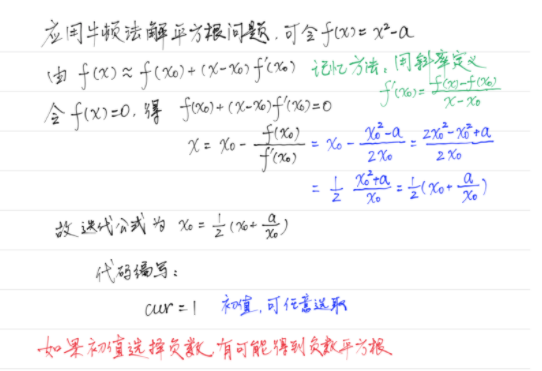 应用牛顿法解平方根问题，可令f(x)=x²-a
由 f(x)≈f(x₀)+(x-x₀)f'(x₀) 记忆方法，用斜率定义
f'(x₀)=\frac{f(x)-f(x₀)}{x-x₀}
令f(x)=0，得 f(x₀)+(x-x₀)f'(x₀)=0
x=x₀-\frac{f(x₀)}{f'(x₀)}=x₀-\frac{x₀²-a}{2x₀}=\frac{2x₀²-x₀²+a}{2x₀}
=\frac{1}{2}\frac{x₀²+a}{x₀}=\frac{1}{2}(x₀+\frac{a}{x₀})
故迭代公式为 x₀=\frac{1}{2}(x₀+\frac{a}{x₀})
代码编写：
cur=1 初值，可任意选取
如果初值选择负数，有可能得到负数平方根